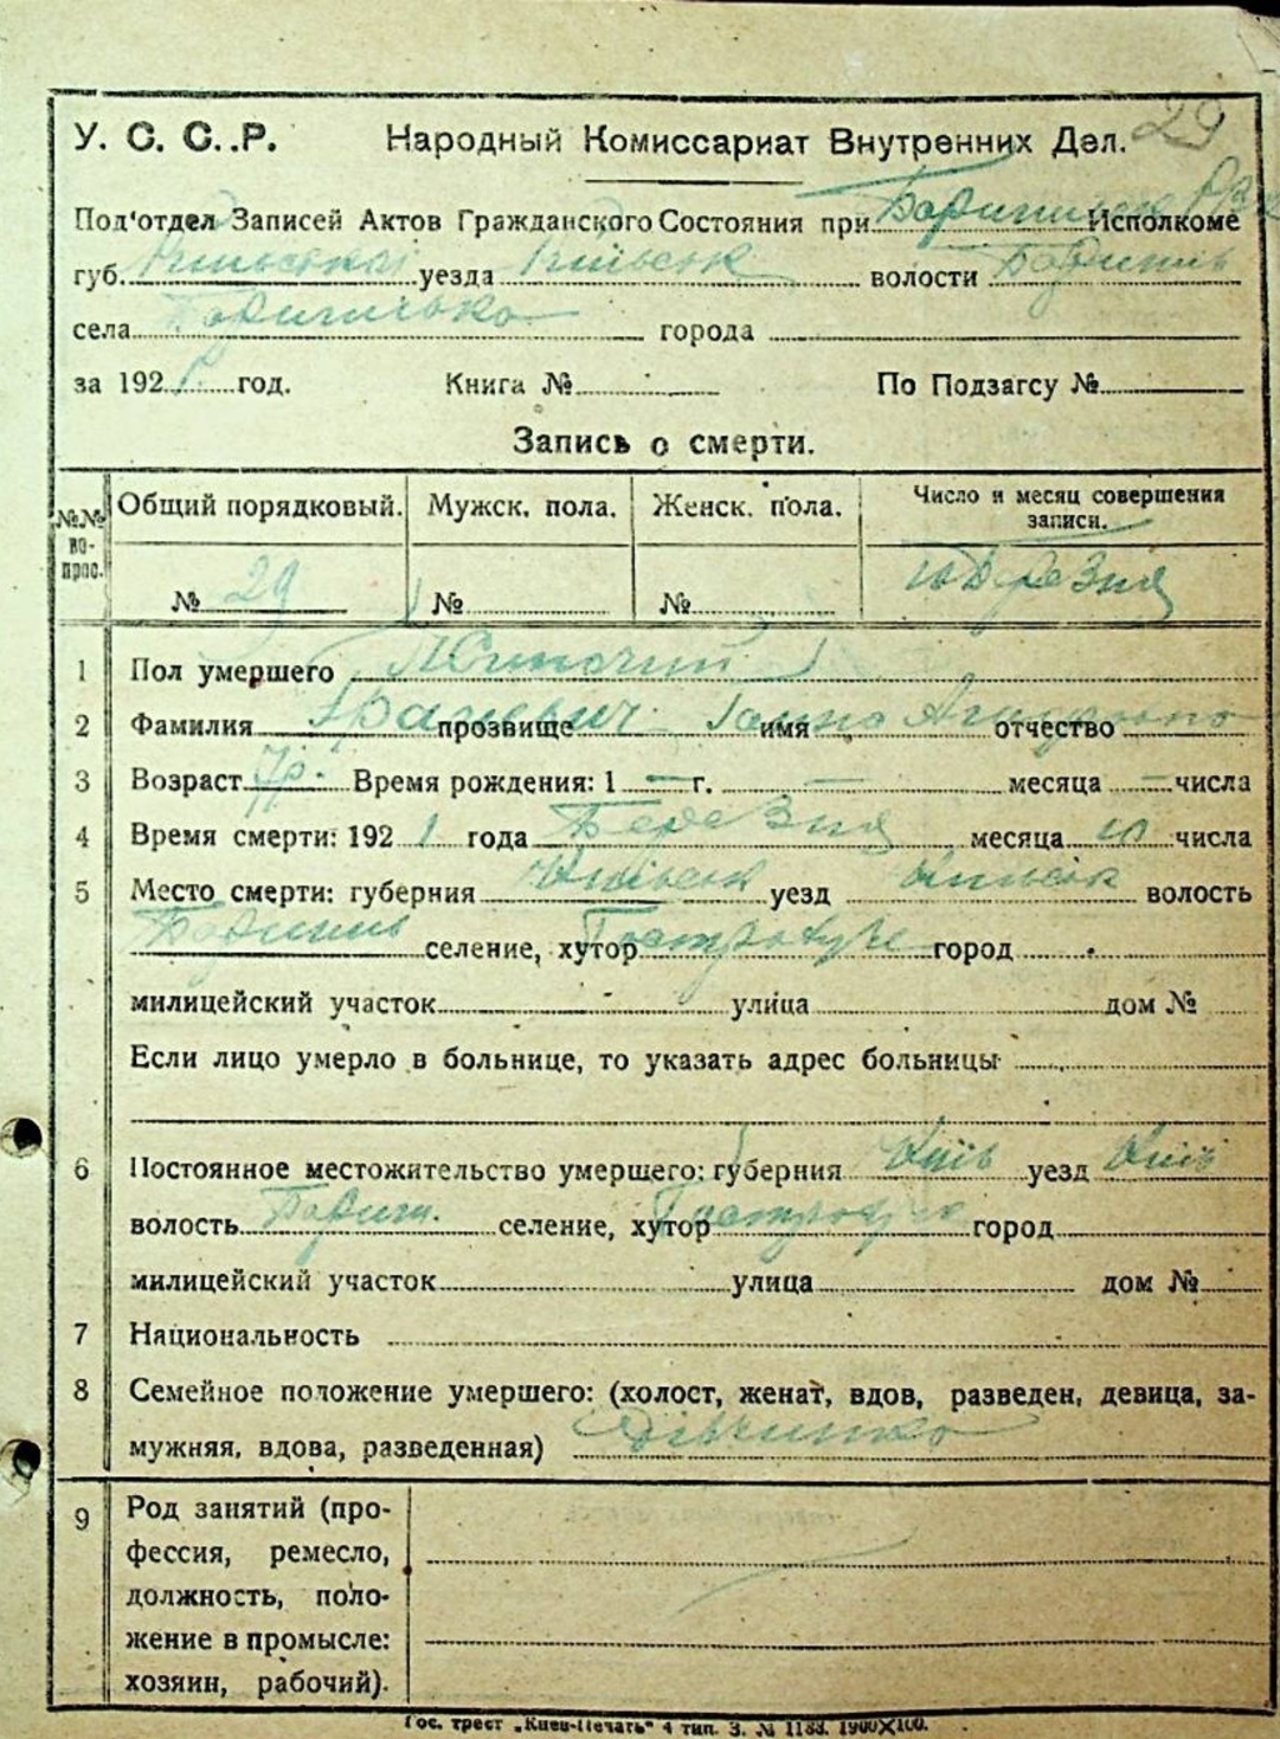 29
У. С. С. Р. Народный Комиссариат Внутренних Дел.
Под'отдел Записей Актов Гражданского Состояния при Исполкоме
губ. уезда Київськ волости Бориспіль
села города
за 192 год. Книга № По Подзагсу №
Запись о смерти.
№№ вопрос. Общий порядковый. Мужск. пола. Женск. пола. Число и месяц совершения записи.
№ 29 № № 10 Березня
1 Пол умершего Жиночий
2 Фамилия прозвище имя отчество
3 Возраст 7 р. Время рождения: 1 — г. — месяца — числа
4 Время смерти: 192 1 года Березня месяца 10 числа
5 Место смерти: губерния Київськ уезд Київськ волость
Бориспіль селение, хутор город
милицейский участок улица дом №
Если лицо умерло в больнице, то указать адрес больницы
6 Постоянное местожительство умершего: губерния Київ уезд Київ
волость селение, хутор город
милицейский участок улица дом №
7 Национальность
8 Семейное положение умершего: (холост, женат, вдов, разведен, девица, за-
мужняя, вдова, разведенная) Дівчинка
9 Род занятий (про-
фессия, ремесло,
должность, поло-
жение в промысле:
хозяин, рабочий).
Гос. трест „Киев-Печать“ 4 тип. З. № 1183. 1900×100.